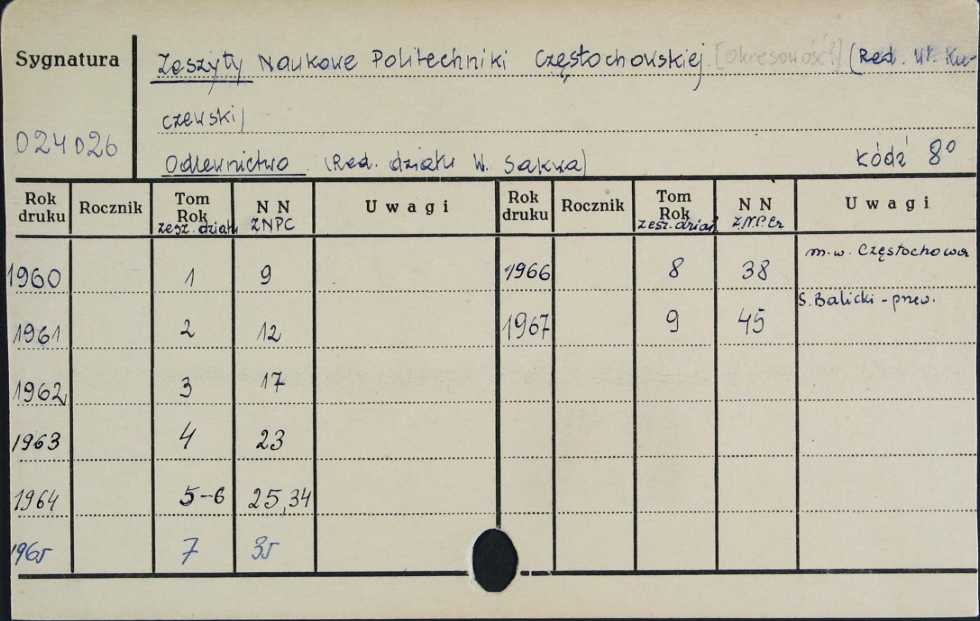 Sygnatura
Zeszyty Naukowe Politechniki Częstochowskiej. [Okresowość] (Red. Wł. Ku-
czewski)
024026
Odlewnictwo (Red. działu W. Sakwa) Łódź 8°
Rok druku Rocznik Tom Rok zesz. działu N N ZNPC Uwagi Rok druku Rocznik Tom Rok zesz. dział N N Z.N.P.Cz Uwagi
1960 1 9 1966 8 38 m.w. Częstochowa
1961 2 12 1967 9 45 S. Balicki - prev.
1962 3 17
1963 4 23
1964 5-6 25,34
1965 7 35